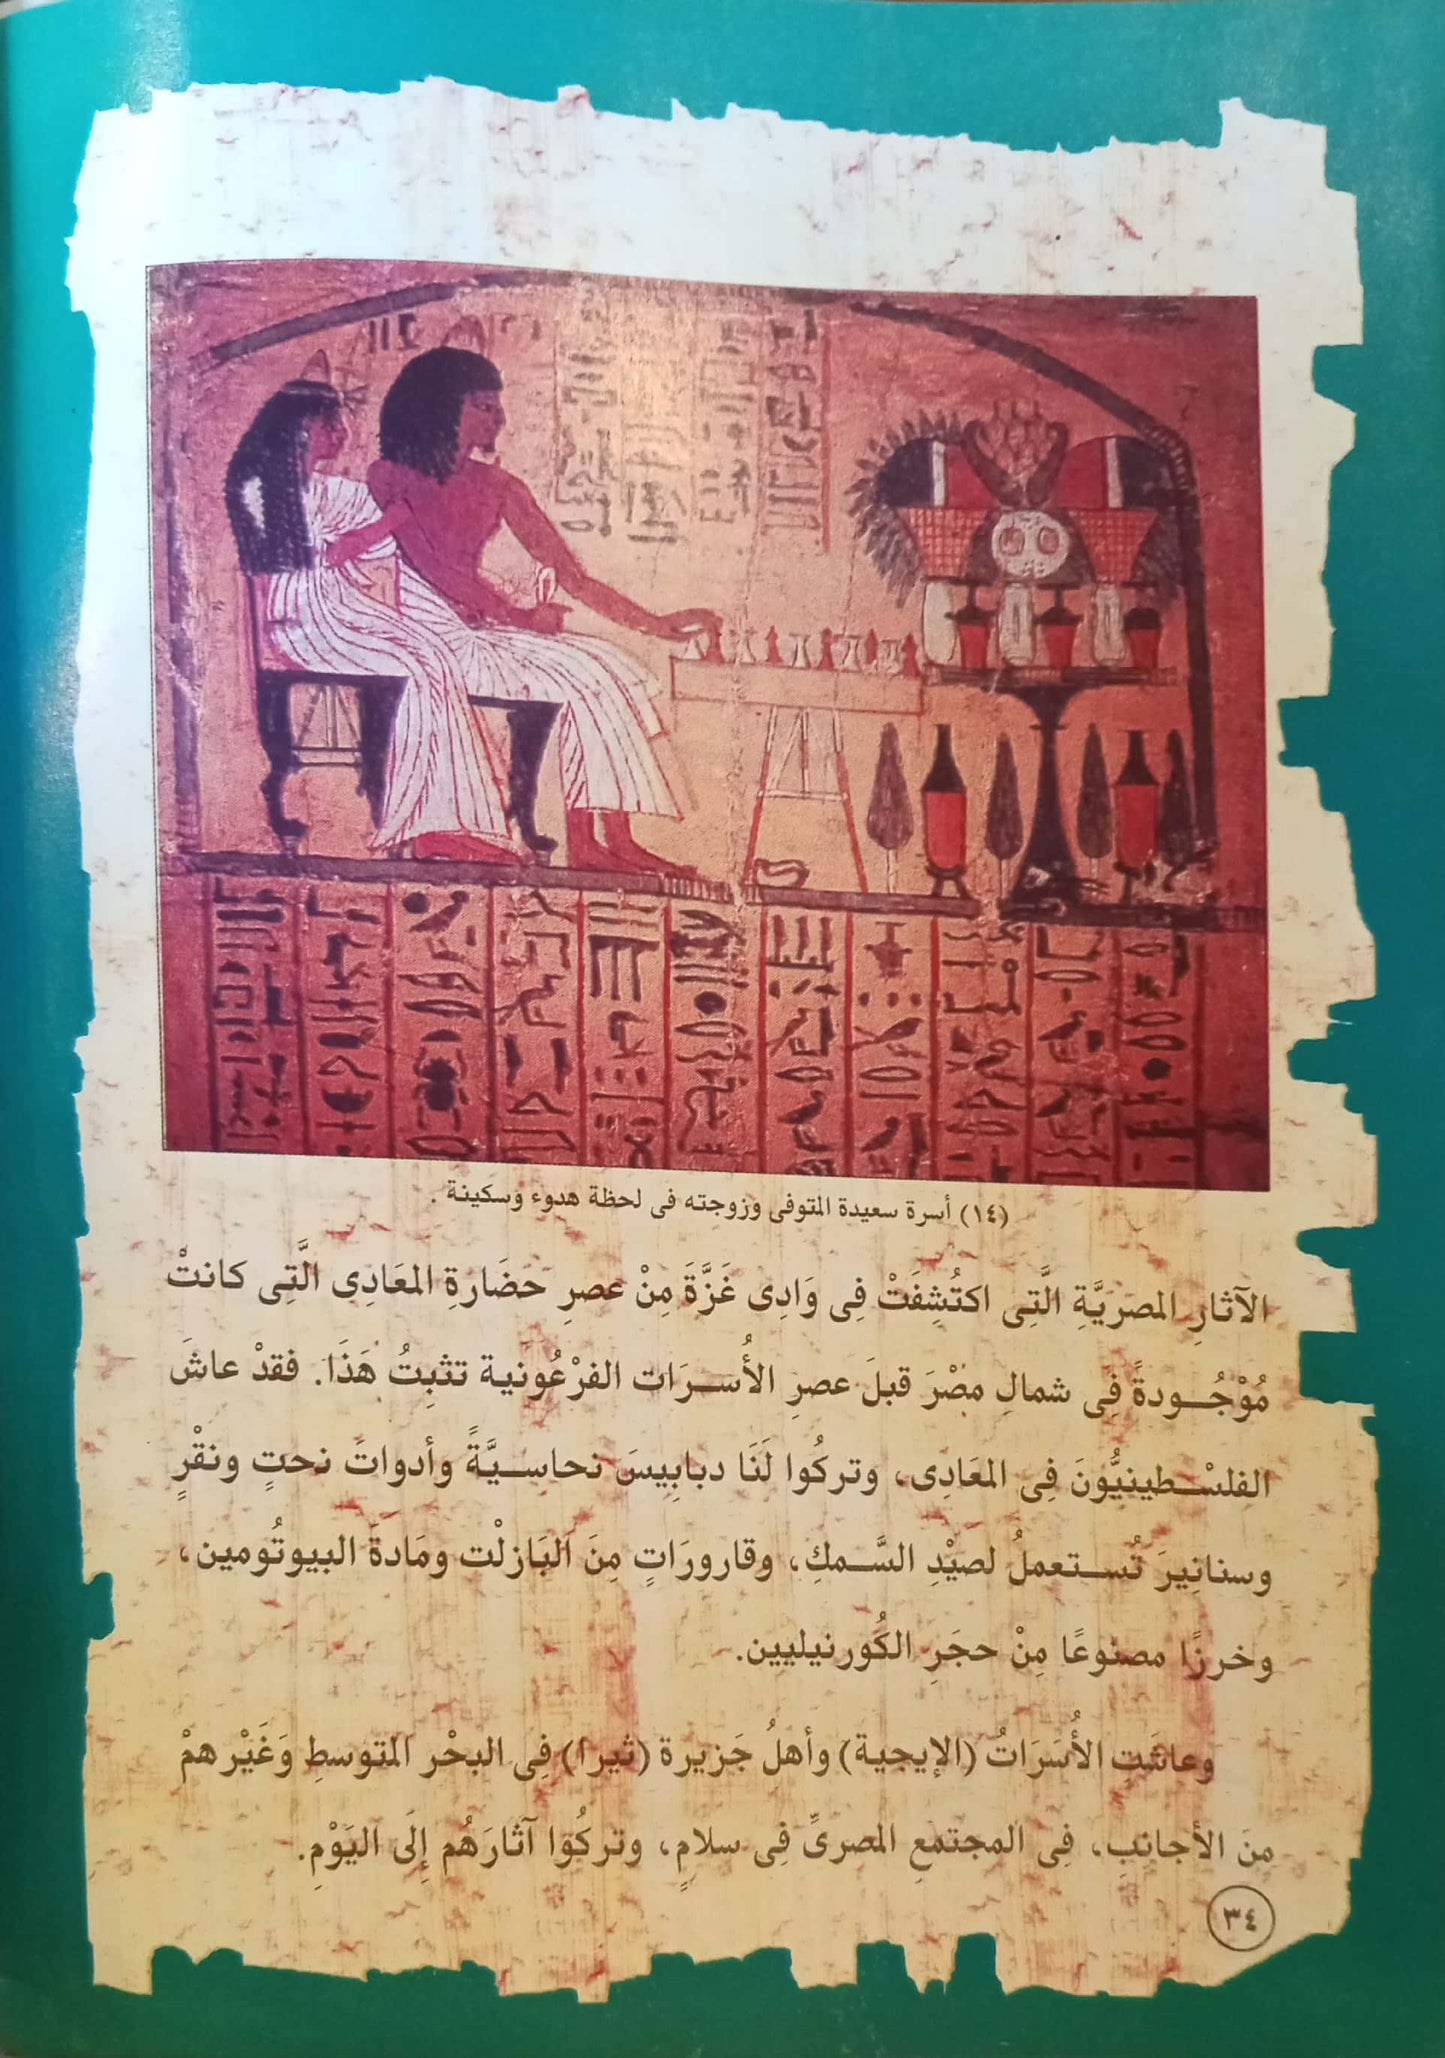 (١٤) أسرة سعيدة المتوفى وزوجته فى لحظة هدوء وسكينة .
الآثارِ المصريَّةِ الَّتِى اكتُشِفَتْ فِى وَادِى غَزَّةَ مِنْ عصرِ حضَارةِ المعَادِى الَّتِى كانتْ
مُوْجُودةً فِى شمالِ مصْرَ قبلَ عصرِ الأُسرَات الفرْعُونية تثبِتُ هَذَا. فقدْ عاشَ
الفِلسْطينيُّونَ فِى المعَادِى، وتركُوا لَنَا دبابِيسَ نحاسِيَّةً وأدواتَ نحتٍ ونقْرٍ
وسنانِيرَ تُستعملُ لصيْدِ السَّمكِ، وقارورَاتٍ مِنَ البَازلْت ومَادةَ البيوتُومين،
وخرزًا مصنوعًا مِنْ حجَرِ الكُورنيليين.
وعاشَت الأُسَرَاتُ (الإيجية) وأهلُ جَزيرة (ثيرا) فِى البحْر المتوسطِ وَغَيْرهمْ
مِنَ الأجانبِ، فِى المجتمعِ المصرىِّ فِى سلامٍ، وتركُوا آثارَهُم إِلَى اليَوْمِ.
٣٤